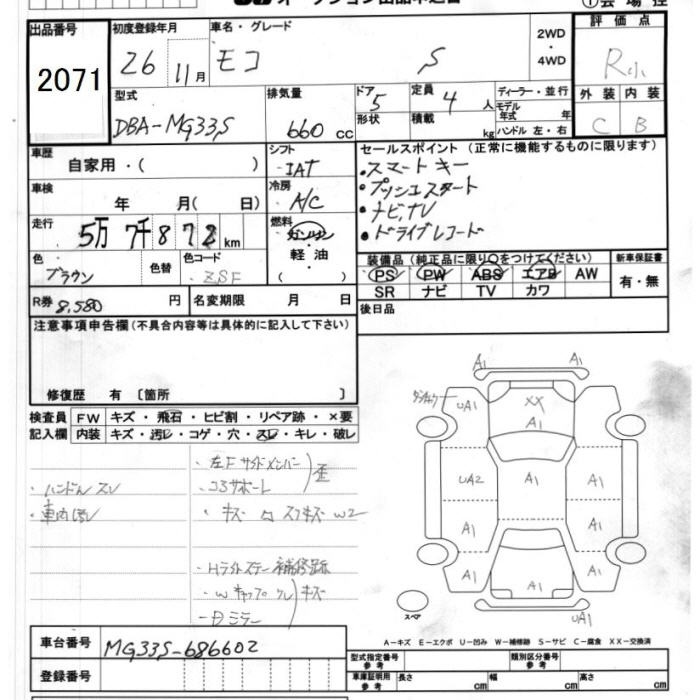 ①会 場 控
出品番号
2071
初度登録年月
26 11月
車名・グレード
モコ S
2WD
・
4WD
評 価 点
R小
型式
DBA-MG33S
排気量
660 cc
ドア 5
形状
定員 4 人
積載 kg
ディーラー・並行
モデル年式 年
ハンドル 左・右
外 装 内 装
C B
車歴
自家用・( )
シフト
IAT
セールスポイント (正常に機能するものに限ります)
・スマートキー
・プッシュスタート
・ナビ,TV
・ドライブレコード
車検
年 月(・ 日)
冷房
A/C
走行
5万 7千 8 7 2 km
燃料
ガソリン
・
軽 油
( )
色
ブラウン
色替
色コード
ZSF
装備品 (純正品に限り○をつけてください)
PS PW ABS エアB AW
SR ナビ TV カワ
新車保証書
有・無
R券 8,580 円
名変期限 月 日
後日品
注意事項申告欄(不具合内容等は具体的に記入して下さい)
修復歴 有 〔箇所 〕
検査員 FW キズ・飛石・ヒビ割・リペア跡・×要
記入欄 内装 キズ・汚レ・コゲ・穴・スレ・キレ・破レ
・左Fサイドメンバー
・コアサポート
歪
・ハンドルスレ
・車内汚レ
・キズ 凹 スリキズ W2
・Hライトステー補修跡
・Wキャップ クレ
キズ
A1 A1
UA1 XX A1 A1
UA2 A1 A1
A1 A1
A1 A1 A1
UA1
スペア
A-キズ E-エクボ U-凹み W-補修跡 S-サビ C-腐食 XX-交換済
車台番号
MG33S-686602
登録番号
型式指定番号
参考
類別区分番号
参考
車庫証明用
参考
長さ cm 幅 cm 高さ cm